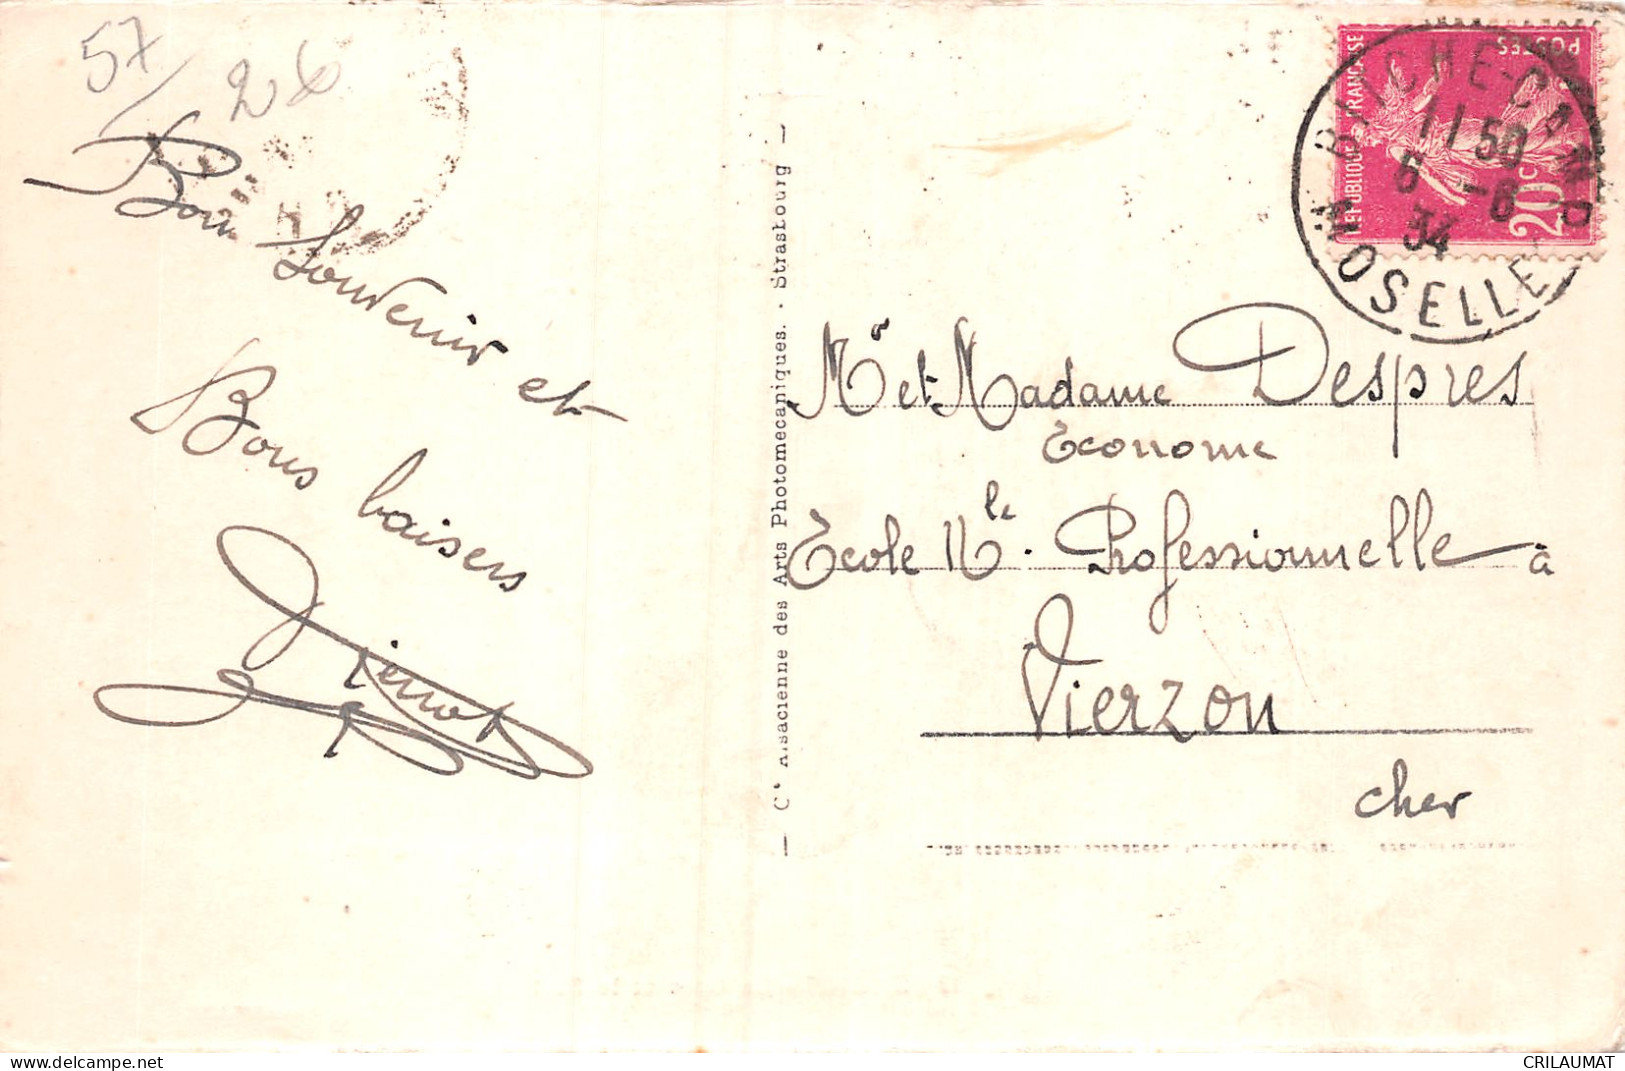 57/
26
Bon Souvenir et
Bons baisers
— Cie Alsacienne des Arts Photomécaniques. - Strasbourg —
BITCHE-CAMP
11 50
6 -6
34
MOSELLE
POSTES
REPUBLIQUE FRANÇAISE
20C
Mr et Madame Despres
Econome
Ecole Nle. Professionnelle à
Vierzon
Cher
delcampe.net
CRILAUMAT